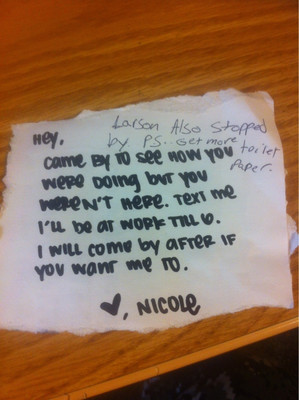 Larson Also Stopped
by P.S... Get more
toilet
Paper.
Hey,
Came by to see how you
were doing but you
weren't here. Text me
I'll be at work till 6.
I will come by after if
you want me to.
♥, Nicole